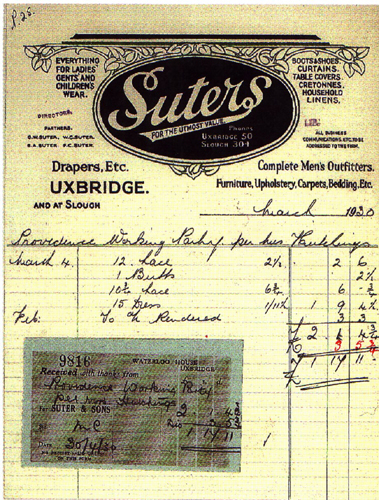 P.25.
EVERYTHING
FOR LADIES'
GENTS AND
CHILDREN'S
WEAR.
BOOTS & SHOES.
CURTAINS.
TABLE COVERS.
CRETONNES.
HOUSEHOLD
LINENS.
Suters
FOR THE UTMOST VALUE.
Phones
UXBRIDGE 50
SLOUGH 304
DIRECTORS.
PARTNERS:
S.W. SUTER. W.C. SUTER.
S.A. SUTER F.C. SUTER.
ALL BUSINESS
COMMUNICATIONS, ETC. TO BE
ADDRESSED TO THE FIRM.
Drapers, Etc.
Complete Men's Outfitters.
UXBRIDGE.
Furniture, Upholstery, Carpets, Bedding, Etc.
AND AT SLOUGH
March 1930
Providence Working Party per Mrs Hutchings
March 4. 12 Lace 2½ 2 6
1 Butts 2½
10½ Lace 6
15 Dress 1/11½ 1 9 4½
Feb: To A/c Rendered 3 3
1 14 11
9816 WATERLOO HOUSE
UXBRIDGE
Received with thanks from
Providence Working Party
per Mrs Hutchings
For SUTER & SONS
1 14 11
Date 30/4/30